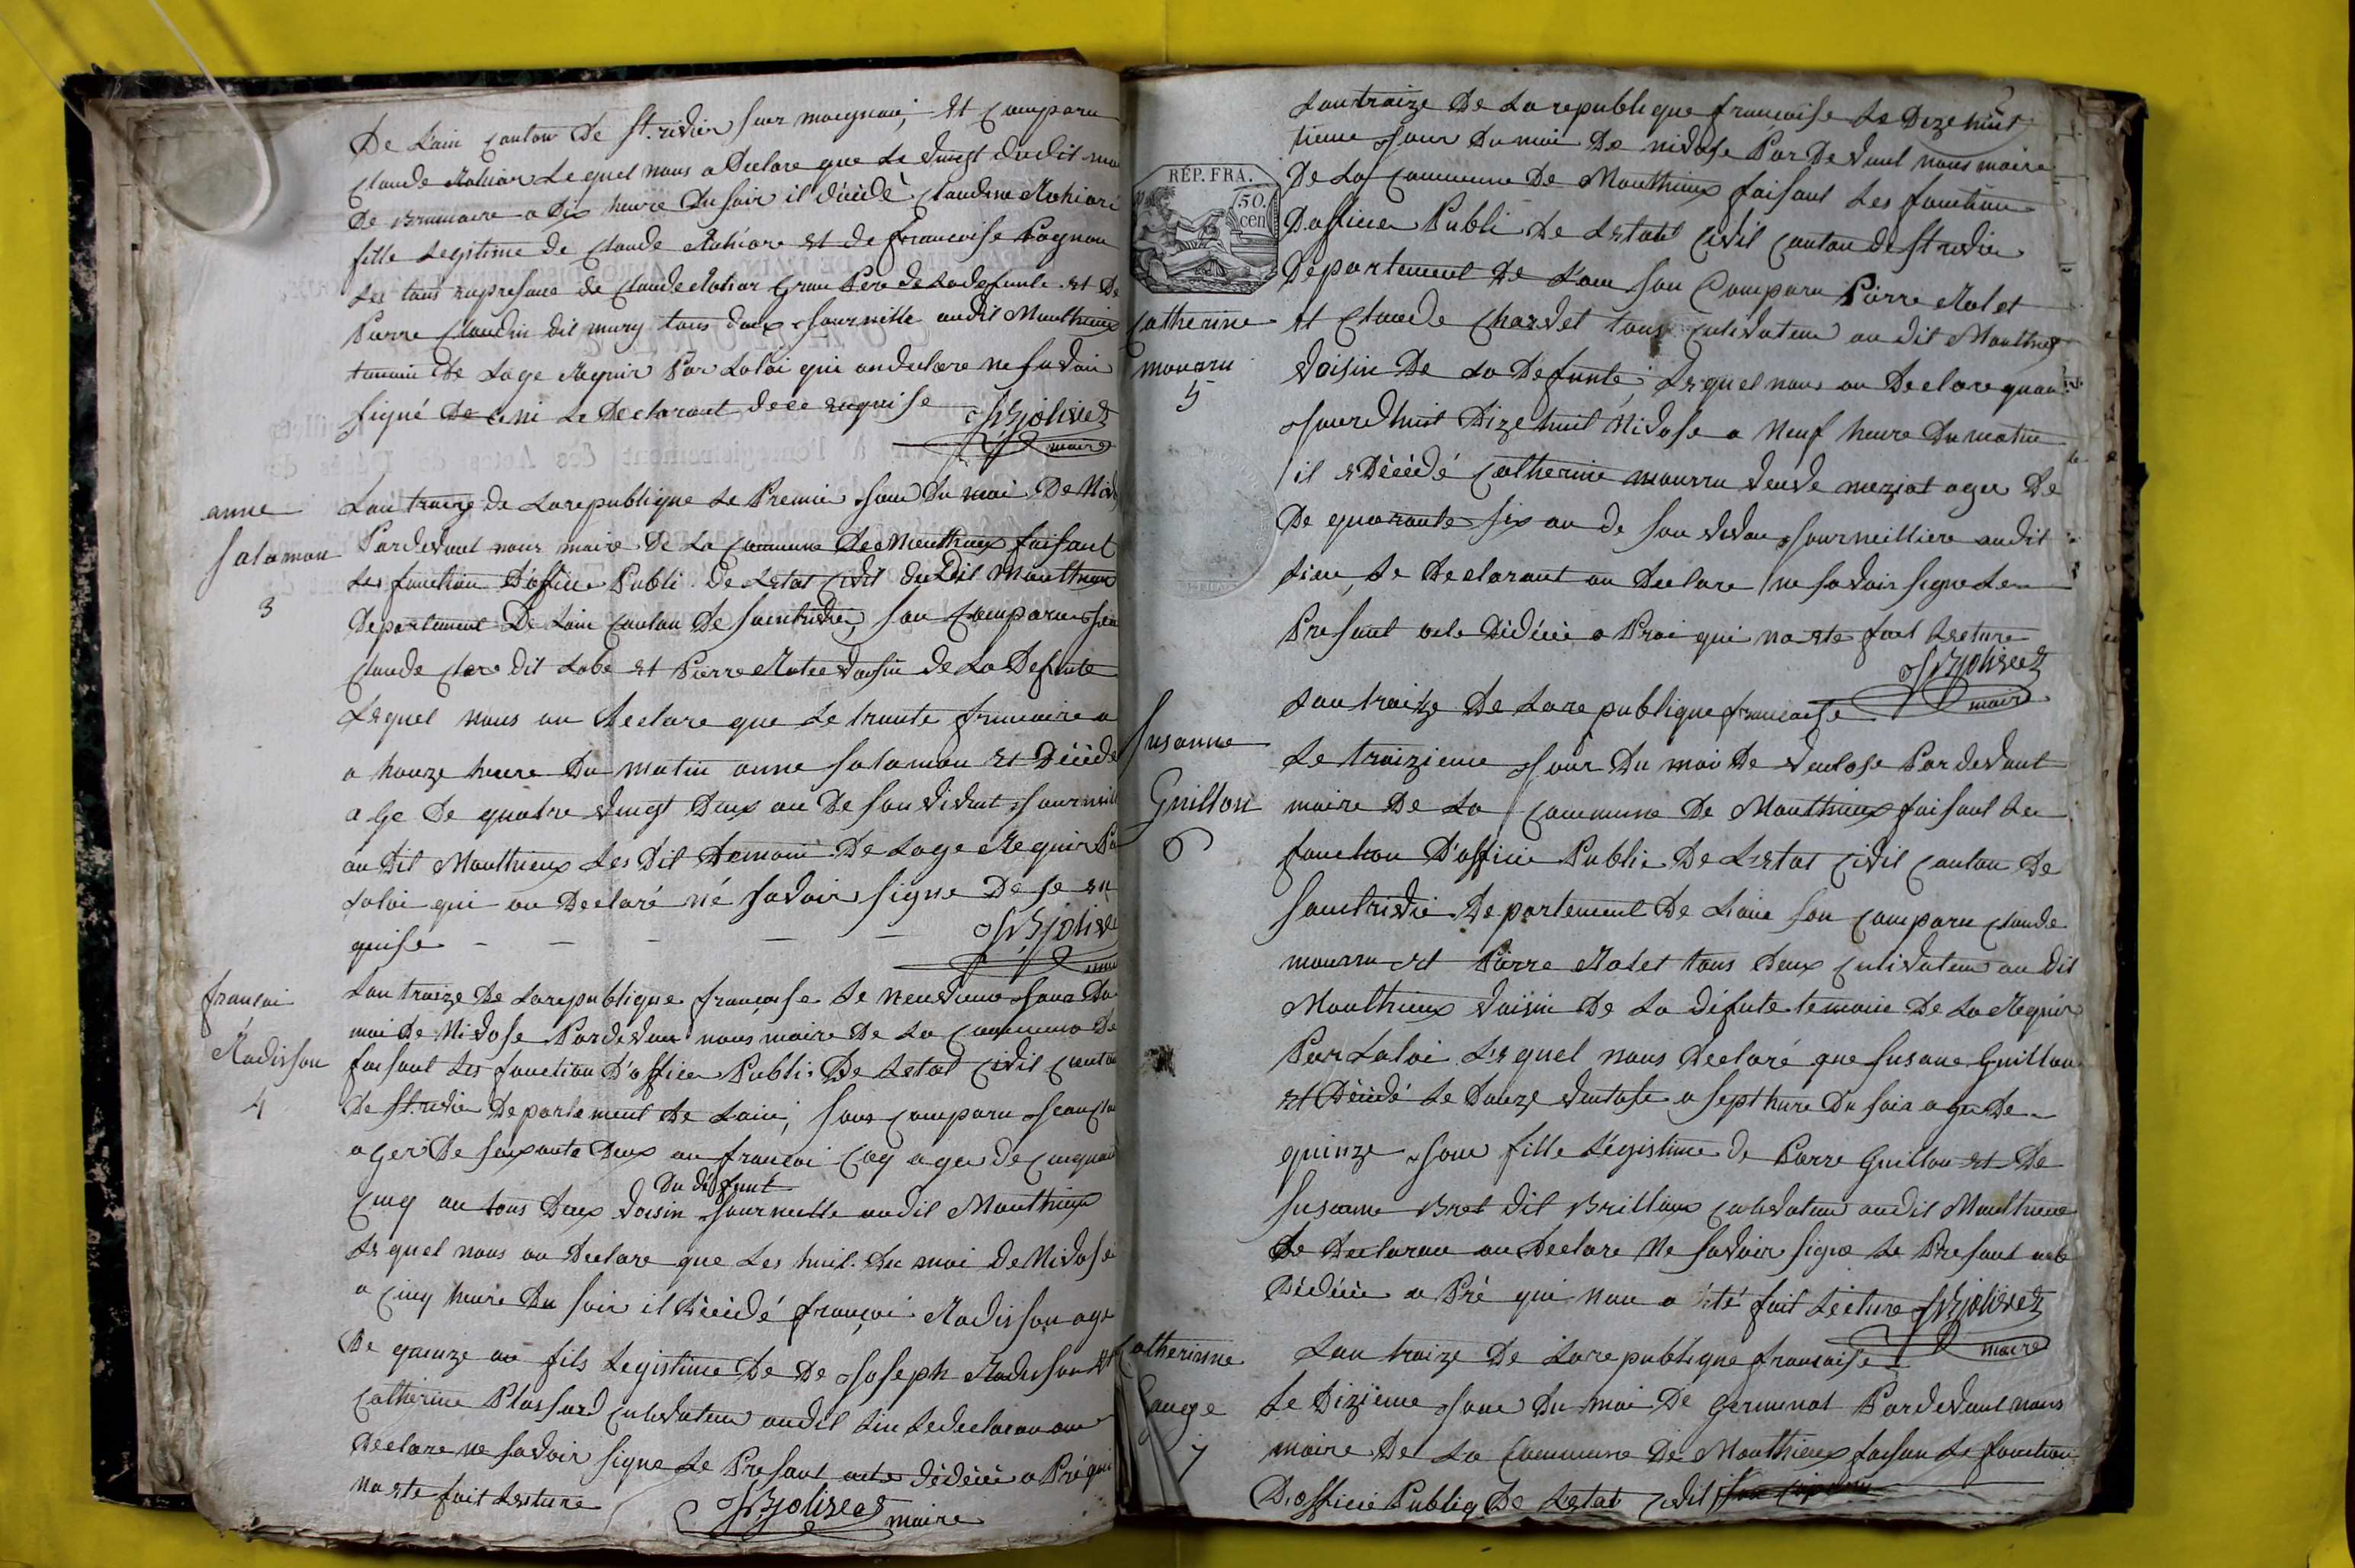 De Lain Canton De St. trivier sur moignan, Et Comparu
Claude Lequel nous a Declare que Le vingt dudit moi
De Brumaire a Dix heure Du soir il décédé Claudine
fille Legitime de Claude et de françoise Pognon
Les tous de Claude Gran Pere de La defunte et De
Pierre Claudin dit mury tous deux Journallie audit Monthieux
temoin De Lage Requir Par La loi qui on declare ne savoir
signé De ce ni Le Declarant de ce requise Jolivet
maire
anne
Salamon
3
Lan traize de La republique Le Premie Jour Du moi De Nivo
Pardevant nous maire De La Commune De Monthieux faisant
Les fonction D'office Publi De Letat Civil Du Dit Monthieux
Departement De Lain Canton De Saintrivie, son Comparu Jean
Claude Clere dit Labe et Pierre voisin de La Defunte
Lequel nous on Declare que Le trante frimaire a
a honze heure Du matin anne Salamon et Décédé
a Ge De quatre vingt Deux an De son vivant
au Dit Monthieux Les Dit temoin De Lage Requir Pa
La loi qui on Declaré né savoir signe De se re
quise Jolive
françoi
Radisson
4
Lan traize De La republique françoise Le neuvieme Jour Du
moi De Nivose Pardevan nous maire De La Commune De
faisant Les fonction D'office Publi De Letat Civil Canton
De St. trivie Departement De Lain, sons comparu Jean Cla
a Ger De soixante Deux an françoi Coq a ger de cinquan
Du defunt
Cinq an tous Deux voisin audit Monthieux
Lequel nous on Declare que Les huit Du moi De Nivose
a Cinq hure Du soir il Décédé françoi Radisson age
De an fils Legistime De De Joseph Radisson et
Catherine Plassard Culivateur audit Lieu Le declaran on
Declare ne savoir signe Le Presant acte dédéció a Pré qui
na ete fait Lecture
Jolivet maire
RÉP. FRA.
50.
cen
Lan traize De La republique françoise Le Dizehuit
tieme Jour Du moi De nivose Par Devant nous maire
De La Commune De Monthieux faisant Les fonction
D'officie Publi De Letat Civil Canton De St. trivie
Departement De Lain son Comparu Pierre Rolet
Catherine
mourru
5
Et Claude Chardet tous Culivateur au dit Monthieux
voisin De La Defunte, Lequel nous on Declare quau
Jourdhuit Dizehuit Nivose a Neuf heure Du matin
il Décédé Catherine mourru veuve meziat ager De
De quarante six an de son vivan Journeilliere audit
Lieu, Le Declarant on Declare ne savoir signe Le
Presant acte Dédécié a Prai qui na ete fait Lecture
Jolivet
maire
Susanne
Guillon
6
Lan traitze De La republique françoise
Le traizieme Jour Du moi De ventose Par devant
maire De La Commune De Monthieux faisant Les
fonction D'officie Public De Letat Civil Canton De
Saintrivié Departement De Laine son comparu Claude
mourru et Pierre Rolet tous Deux Culivateur au Dit
Monthieux voisin De La défute temoin De La Requir
Par La loi Lequel nous Declaré que Susane Guillon
et Décédé Le Douze ventose a sept hure Du soir a ger De
quinze Jour fille Légistime De Pierre Guillon et De
Susanne Bret Dit Brillant Culivateur audit Monthieux
Le Declaran on Declare Ne savoir signe Le Presant acte
Dédécie a Pré qui nan a été fait Lecture Jolivet
maire
Catherinne
7
Lan traize De La republique francaise
Le Dizieme Jour Du moi De Germinal Pardevant nous
maire De La Commune De Monthieux faisan Le fonction
D'officie Publiq De Letat Civil